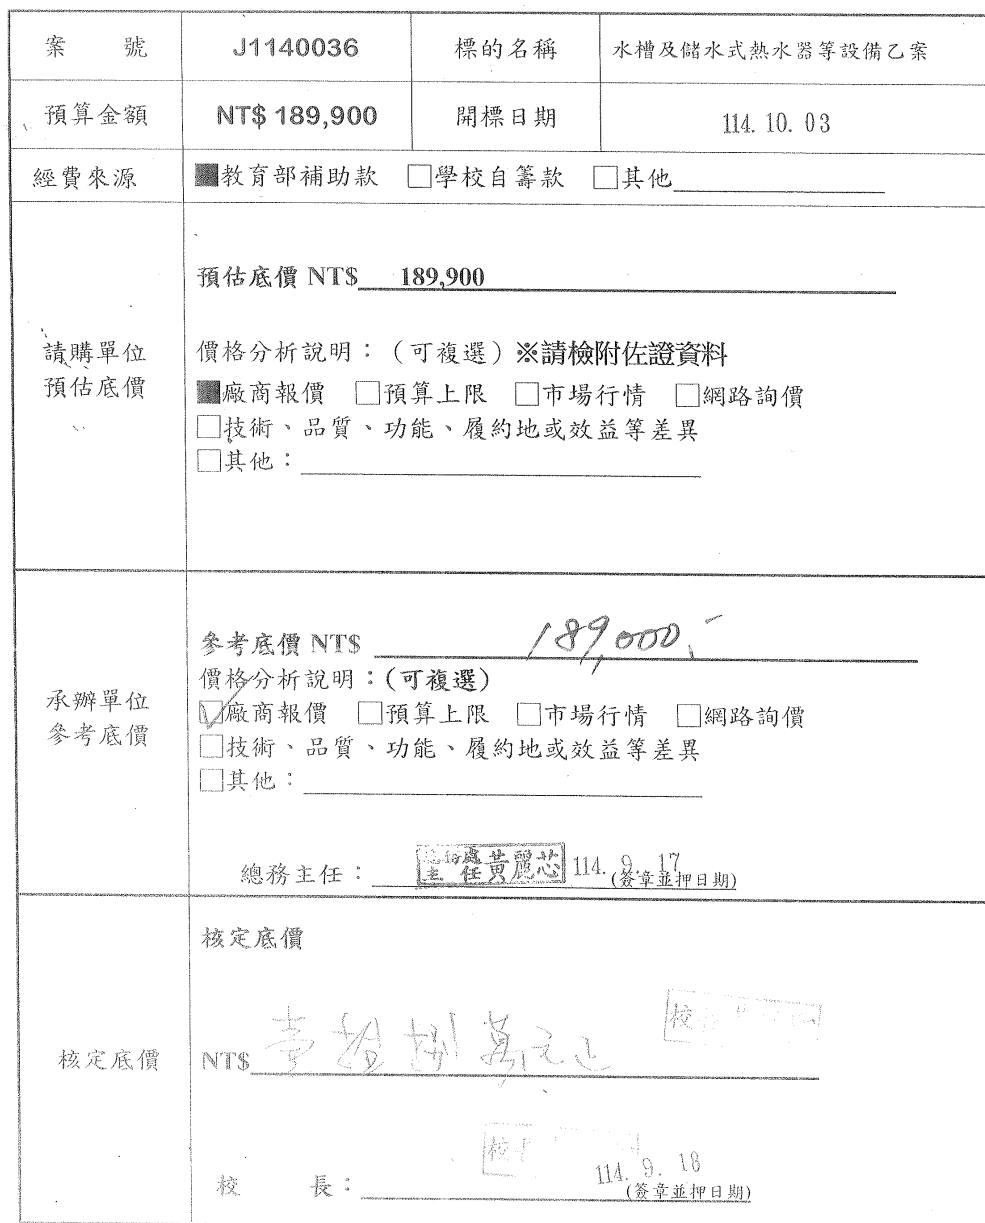 案 號 J1140036 標的名稱 水槽及儲水式熱水器等設備乙案
預算金額 NT$ 189,900 開標日期 114. 10. 03
經費來源 ■教育部補助款 □學校自籌款 □其他
請購單位
預估底價
預估底價 NT$ 189,900
價格分析說明：（可複選）※請檢附佐證資料
■廠商報價 □預算上限 □市場行情 □網路詢價
□技術、品質、功能、履約地或效益等差異
□其他：
承辦單位
參考底價
參考底價 NT$ 189,000.-
價格分析說明：(可複選)
☑廠商報價 □預算上限 □市場行情 □網路詢價
□技術、品質、功能、履約地或效益等差異
□其他：
總務主任： 總務處
主任 黃麗芯 114. 9. 17
(簽章並押日期)
核定底價
核定底價
校
NT$ 壹拾捌萬元正
校
校 長： 114. 9. 18
(簽章並押日期)